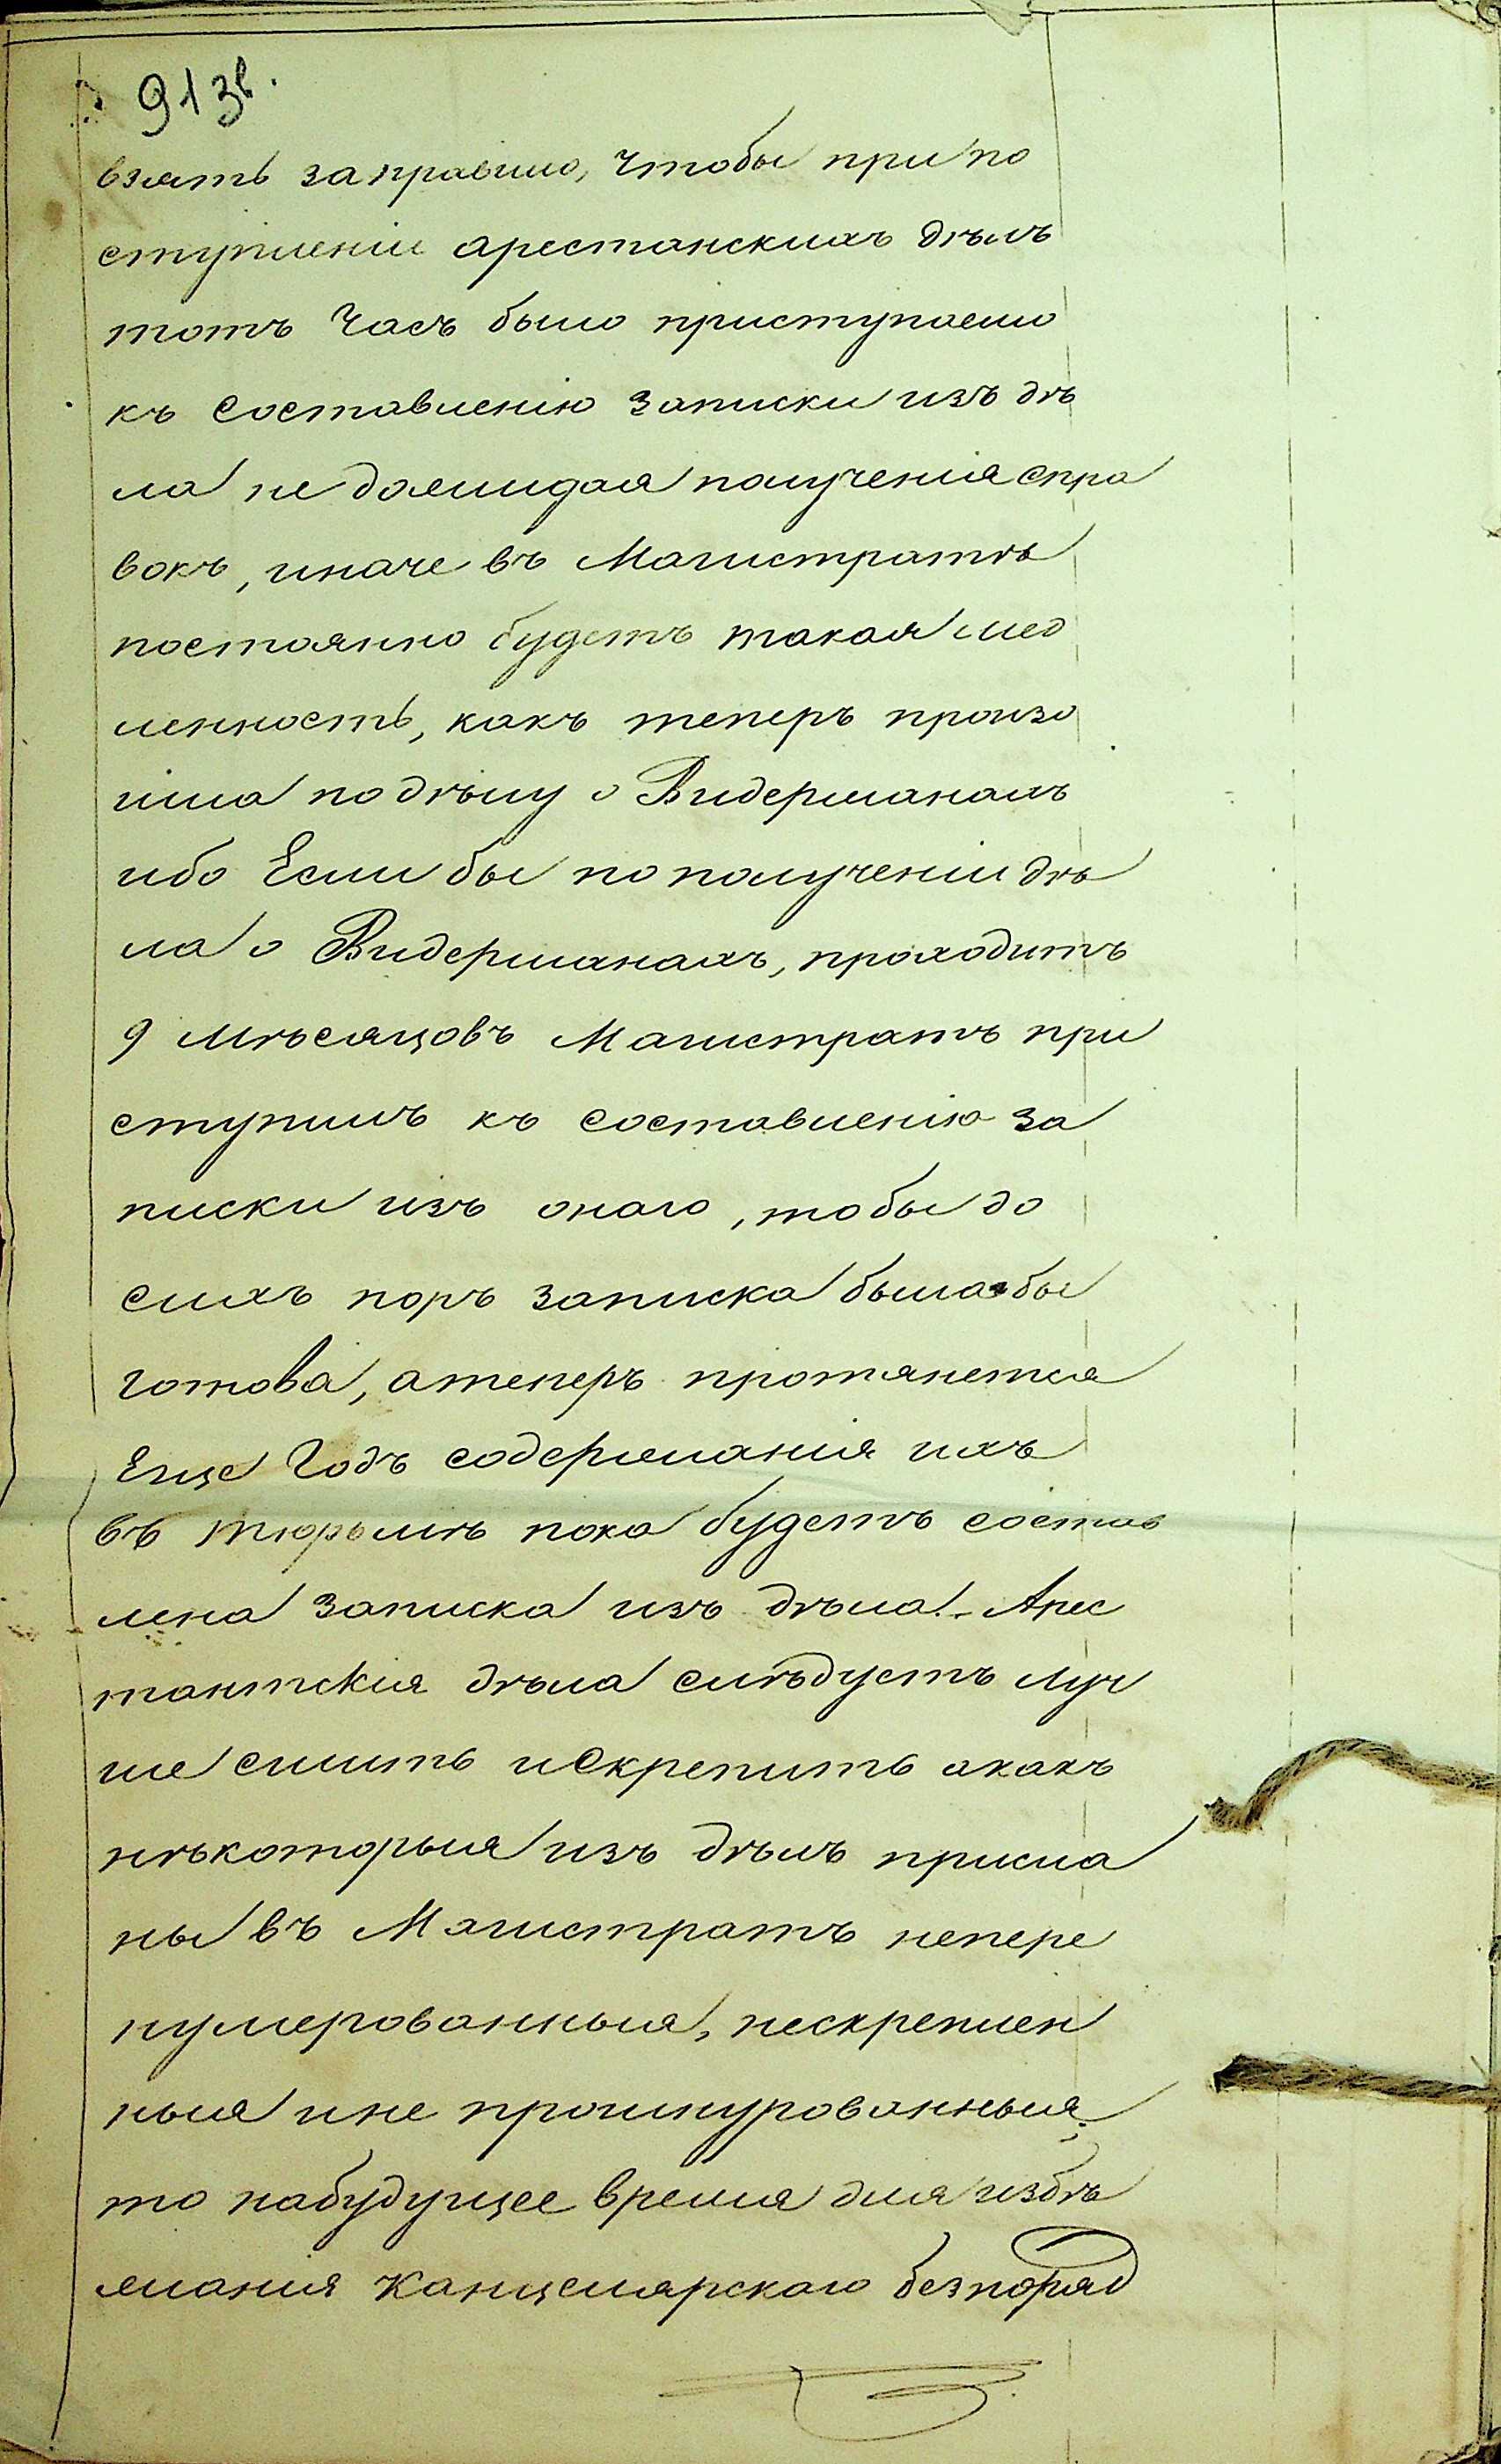 913в.
взять заправило, чтобы при по
ступленіи арестанскихъ дѣлъ
тотъ Часъ было приступаемо
къ составленію записки изъ дѣ
ла не дожидая полученія спра
вокъ, иначе въ Магистратѣ
постоянно будетъ такая мед
ленность, какъ теперь произо
шла по дѣлу о Видерманахъ
ибо Если бы по полученіи дѣ
ла о Видерманахъ, проходитъ
9 мѣсяцовъ Магистратъ при
ступилъ къ составленію за
писки изъ онаго, тобы до
сихъ поръ записка была бы
готова, атеперь протянется
Еще Годъ содержанія ихъ
въ тюрьмѣ пока будетъ состав
лена записка изъ дѣла. Арес
тантскія дѣла слѣдуетъ луч
ше сшить искрепить акакъ
нѣкоторыя изъ дѣлъ присла
ны въ Магистратъ непере
нумерованныя, нескреплен
ныя ине прошнурованныя,
то набудущее время для избѣ
жанія Канцелярскаго безпоряд